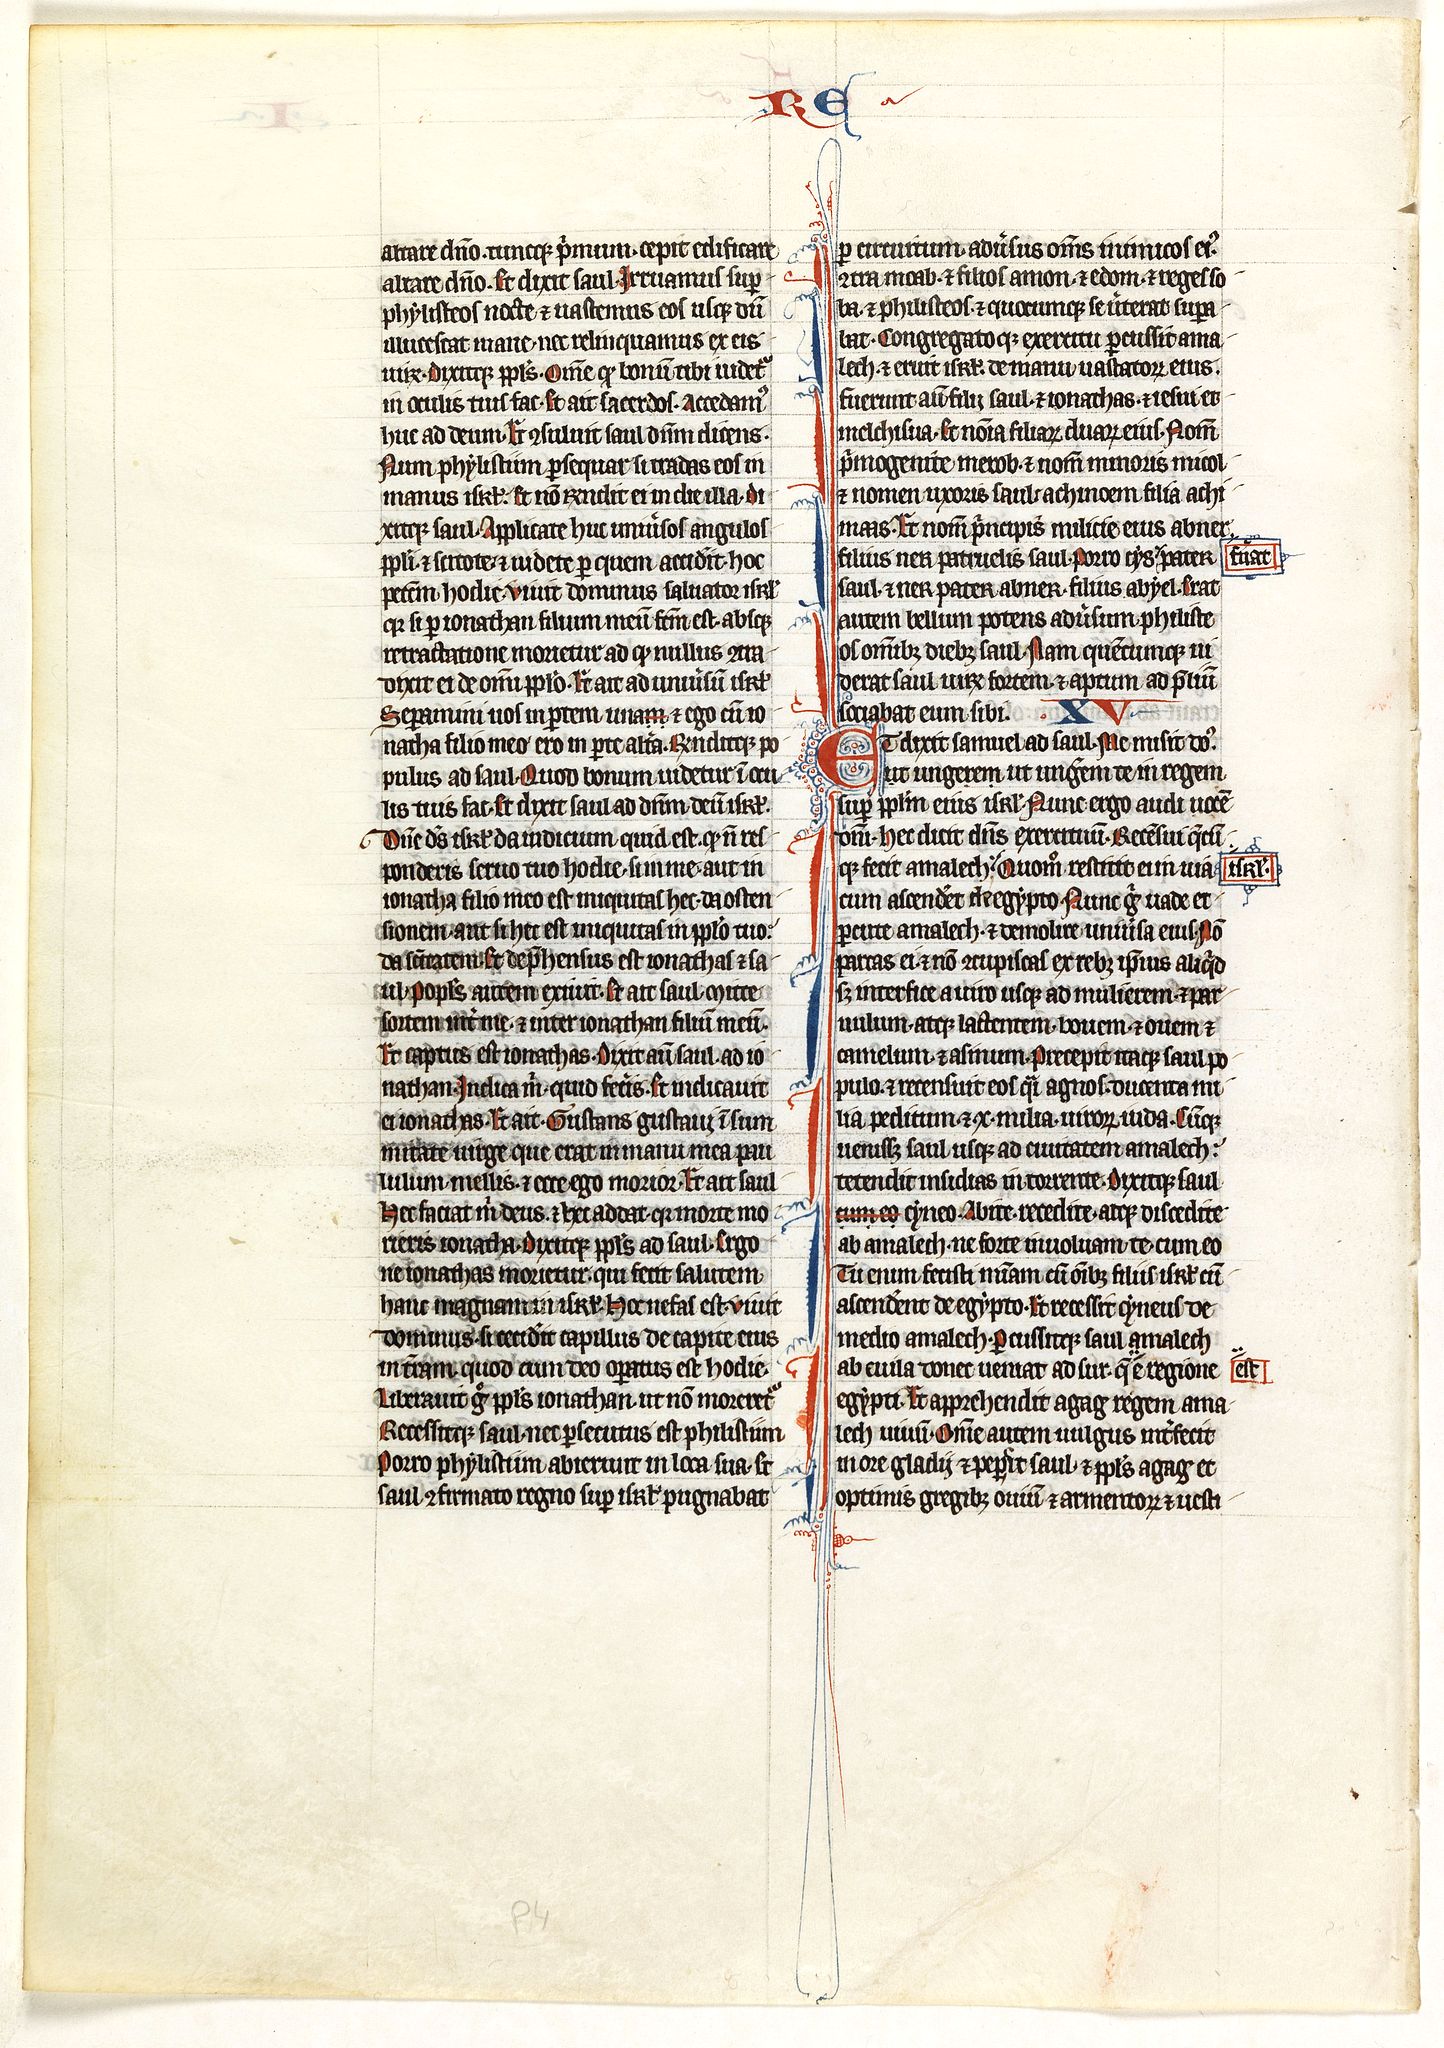 RE
altare dño. tuncqꝫ p̃mum. cepit edificare
altare dño. Et dixit saul. Irruamus suꝑ
phylisteos nocte ⁊ uastemus eos usqꝫ dũ
illucescat mane. nec relinquamus ex eis
uiꝝ. Dixitqꝫ ppl̃s. Om̃e qđ bonũ tibi uidet᷑
in oculis tuis fac. Et ait sacerdos. Accedamꝰ
huc ad deum. Et ꝯsuluit saul dñm dicens.
Num phylistiim ꝑsequar si tradas eos in
manus isrl̃. Et nõ rñdit ei in die illa. Di
xitqꝫ saul. Applicate huc uniũsos angulos
ppl̃i. ⁊ scitote. ⁊ uidete ꝑ quem acciđit. hoc
pctm̃ hodie. Viuit dominus saluator isrl̃
qꝛ si ꝑ ionathan filium meũ fcm̃ est. absqꝫ
retractatione morietur ad qđ nullus ꝯtra
dixit ei de om̃i ppl̃o. Et ait ad uniũsũ isrl̃
Separamini uos in ꝑtem unam ⁊ ego cũ io
natha filio meo ero in ꝑte alt̃a. Rñditqꝫ po
pulus ad saul. Quod bonum uidetur ĩ ocu
lis tuis fac. Et dixit saul ad dñm deũ isrl̃.
Dñe ds̃ isrl̃ da iudicium quid est. qđ ñ res
ponderis seruo tuo hodie. si in me. aut in
ionatha filio meo est iniquitas hec. da osten
sionem. aut si hec est iniquitas in ppl̃o tuo.
da scĩtatem. Et dep̃hensus est ionathas ⁊ sa
ul. Popl̃s autem exiuit. Et ait saul. Mitte
sortem int̃ me. ⁊ inter ionathan filiũ meũ.
Et captus est ionathas. Dixit aũ saul. ad io
nathan. Indica m̃. quid fec̃is. Et indicauit
ei ionathas. Et ait. Gustans gustaui ĩ sum
mitate uirge que erat in manu mea pau
lulum mellis. ⁊ ecce ego morior. Et ait saul
Hec faciat m̃ deus. ⁊ hec addat. qꝛ morte mo
rieris ionatha. Dixitqꝫ ppl̃s ad saul. Ergo
ne ionathas morietur. qui fecit salutem
hanc magnam in isrl̃. Hoc nefas est. Viuit
dominus. si ceciđit capillus de capite eius
in t̃ram. quod cum deo oꝑatus est hodie.
Liberauit gͦ ppl̃s ionathan. ut nõ moreret᷑
Recessitqꝫ saul. nec ꝑsecutus est philistiim
Porro phylistiim abierunt in loca sua. Et
saul ꝯfirmato regno suꝑ isrl̃. pugnabat
ꝑ circuitum. adũsus om̃s inimicos eiꝰ.
ꝯtra moab. ⁊ filios amon. ⁊ edom. ⁊ reges so
ba. ⁊ philisteos. ⁊ quocumqꝫ se ũterat suꝑa
bat. Congregatoqꝫ exercitu ꝑcussit ama
lech. ⁊ eruit isrl̃. de manu uastatoꝝ eius.
fuerunt aũ filij saul. ⁊ ionathas. ⁊ iesui et
melchisua. Et nõia filiaꝝ duaꝝ eius. Nom̃
p̃mogenite merob. ⁊ nom̃ minoris micol
⁊ nomen uxoris saul. achinoem filia achi
maas. Et nom̃ p̃ncipis̃ milicie eius abner.
filius ner patruelis saul. Porro cys pater
fũat
saul. ⁊ ner pater abner. filius abyel. Erat
autem bellum potens adũsum philiste
os om̃ibꝫ diebꝫ saul. Nam quẽcumqꝫ ui
derat saul uiꝝ fortem. ⁊ aptum ad p̃liũ
sociabat eum sibi.
XV
ET dixit samuel ad saul. Me misit doꝰ.
ut ungerem ut ung̃em te in regem
suꝑ ppl̃m eius isrl̃. Nunc ergo audi uocẽ
dom̃i. Hec dicit dñs exercituũ. Recẽsui q̃cũ
qꝫ fecit amalech. Quom̃o restitit ei in uia
isrl̃.
cum ascenđet de egypto. Nunc gͦ uade et
ꝑcute amalech. ⁊ demolire uniũsa eius. Nõ
parcas ei. ⁊ nõ ꝯcupiscas ex rebꝫ ip̃ius aliq̃d
sꝫ interfice a uiro usqꝫ ad mulierem. ⁊ par
uulum. atqꝫ lactentem. bouem. ⁊ ouem ⁊
camelum. ⁊ asinum. Precepit itaqꝫ saul po
pulo. ⁊ recensuit eos q̃i agnos. ducenta mi
lia peditum. ⁊ x. milia. uiroꝝ iuda. Cũqꝫ
uenissꝫ saul usqꝫ ad ciuitatem amalech.
tetendit insidias in torrente. Dixitqꝫ saul
cum eo cyneo. Abite. recedite. atqꝫ discedite
ab amalech. ne forte inuoluam. te. cum eo
Tu enim fecisti mĩam cũ õibꝫ filiis isrl̃ cũ
ascenđent de egypto. Et recessit cyneus de
medio amalech. Ꝑcussitqꝫ saul amalech
ab euila donec ueniat ad sur. q̃ ẽ regione
est
egypti. Et apprehendit agag regem ama
lech uiuũ. Om̃e autem uulgus int̃fecit
in ore gladij ⁊ peꝑcit saul. ⁊ ppl̃s agag et
optimis gregibꝫ ouiũ ⁊ armentoꝝ ⁊ uesti
P4